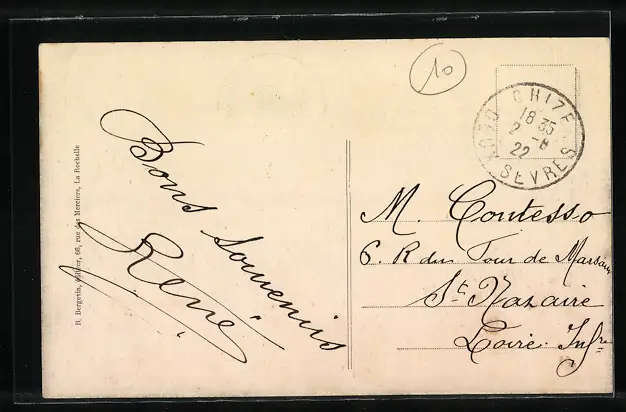 10
CHIZÉ
18 35
2 -8
22
DEUX SÈVRES
Bons souvenirs
René
M. Contesso
6. R du Four de Marsain
St. Nazaire
Loire. Infre
R. Bergevin, éditeur, 68, rue des Merciers, La Rochelle